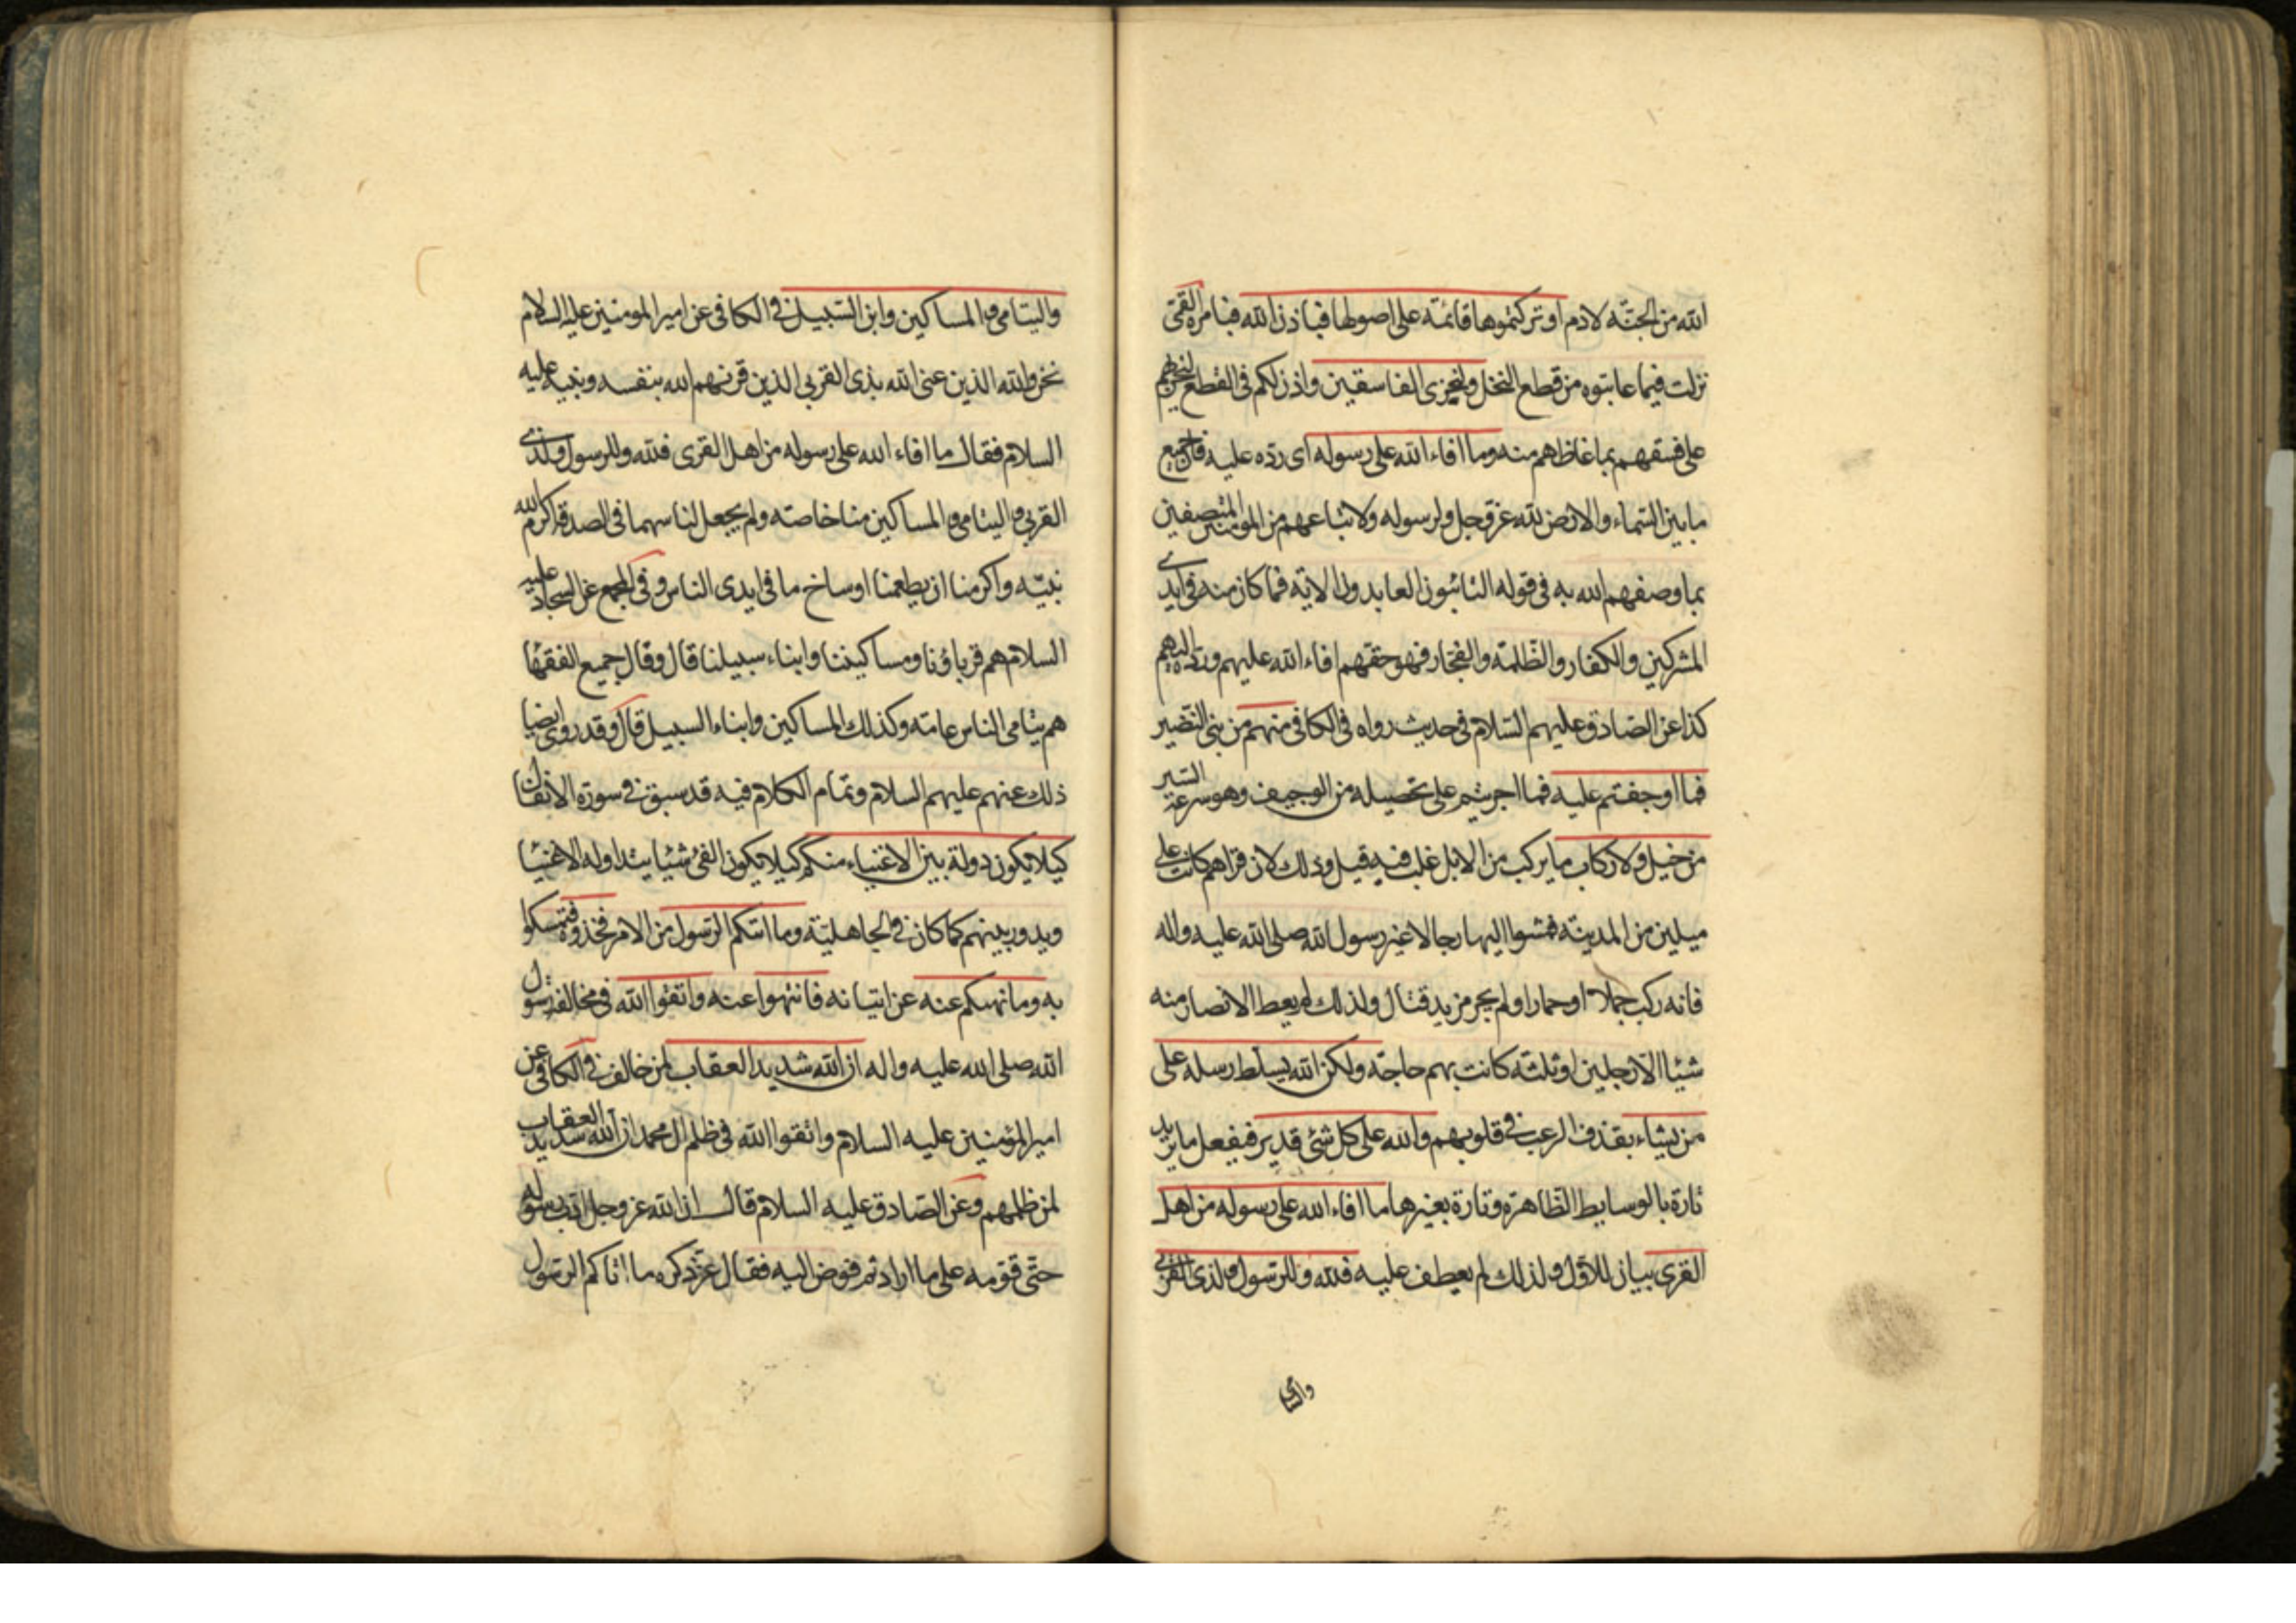 الله من الجنّة لادم او تركتموها قائمة على اصولها فباذن الله فبامره القمّى
نزلت فيما عاتبوه من قطع النخل وليخزى الفاسقين واذن لكم فى القطع ليخزيهم
على فسقهم بما غاظهم منه وما افاء الله على رسوله اى ردّه عليه فان جميع
ما بين السّماء والارض لله عزّ وجل ولرسوله ولاتباعهم من المؤمنين المتّصفين
بما وصفهم الله به فى قوله التائبون العابدون الاية فما كان منه فى ايدى
المشركين والكفار والظّلمة والفجّار فهو حقهم افاء الله عليهم وردّه اليهم
كذا عن الصّادق عليهم السّلام فى حديث رواه فى الكافى منهم من بنى النّضير
فما اوجفتم عليه فما اجريتم على تحصيله من الوجيف وهو سرعة السّير
من خيل ولا ركاب ما يركب من الابل غلب فيه قيل وذلك لان قراهم كانت على
ميلين من المدينة فمشوا اليها رجالا غير رسول الله صلى الله عليه واله
فانه ركب جملا او حمارا ولم يجر مزيد قتال ولذلك لم يعط الانصار منه
شيئا الّا رجلين او ثلثة كانت بهم حاجة ولكن الله يسلّط رسله على
من يشاء بقذف الرعب فى قلوبهم والله على كل شئ قدير فيفعل ما يريد
تارة بالوسايط الظّاهرة وتارة بغيرها ما افاء الله على رسوله من اهل
القرى بيان للاوّل ولذلك لم يعطف عليه فلله وللرّسول ولذى القربى
واليتامى
واليتامى والمساكين وابن السّبيل فى الكافى عن امير المومنين عليه السلام
نحن والله الذين عنى الله بذى القربى الذين قرنهم الله بنفسه ونبيه عليه
السلام فقال ما افاء الله على رسوله من اهل القرى فلله وللرسول ولذى
القربى واليتامى والمساكين منا خاصة ولم يجعل لنا سهما فى الصدقة اكرم الله
نبيّه واكرمنا ان يطعمنا اوساخ ما فى ايدى الناس وفى المجمع عن السجاد عليه
السلام هم قرباؤنا ومساكيننا وابناء سبيلنا قال وقال جميع الفقها
هم يتامى الناس عامة وكذلك المساكين وابناء السبيل قال وقد روى ايضا
ذلك عنهم عليهم السلام وتمام الكلام فيه قد سبق فى سورة الانفال
كيلا يكون دولة بين الاغنياء منكم كيلا يكون الفئ شيئا يتداوله الاغنيا
ويدور بينهم كما كان فى الجاهليّة وما اتيكم الرّسول من الامر فخذوه فتمسكوا
به وما نهيكم عنه عن اتيانه فانتهوا عنه واتقوا الله فى مخالفة رسول
الله صلى الله عليه واله ان الله شديد العقاب لمن خالف فى الكافى عن
امير المؤمنين عليه السلام واتقوا الله فى ظلم ال محمد ان الله شديد العقاب
لمن ظلمهم وعن الصّادق عليه السلام قال ان الله عز وجل ادّب رسوله
حتّى قوّمه على ما اراد ثم فوض اليه فقال عزّ ذكره ما اتاكم الرّسول